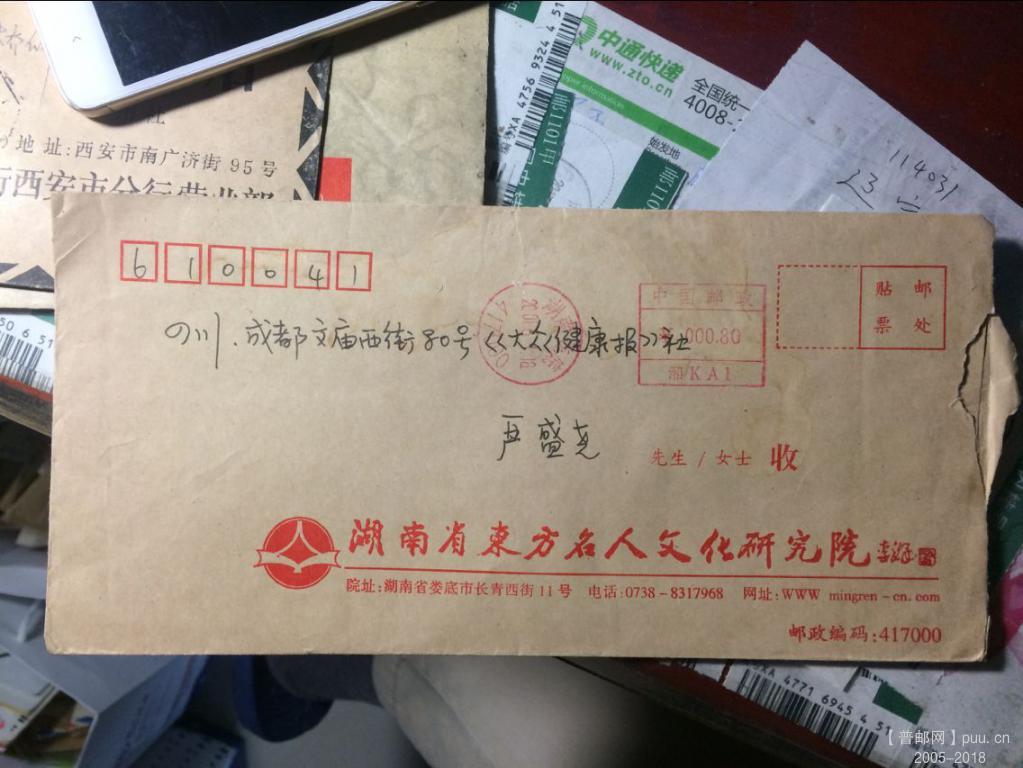 地 址:西安市南广济街 95 号
行西安市分行营业部
中通快递
www.zto.cn
全国统一
4008-
始发地
114031
610041
四川.成都文庙西街80号《大众健康报》社
中国邮政
000.80
湘KA1
贴 邮
票 处
严盛尧
先生 / 女士 收
湖南省東方名人文化研究院
院址:湖南省娄底市长青西街 11 号 电话:0738-8317968 网址:WWW mingren-cn.com
邮政编码:417000
4756 9324 4 51
4771 6945 4 51
【普邮网】puu.cn
2005-2018